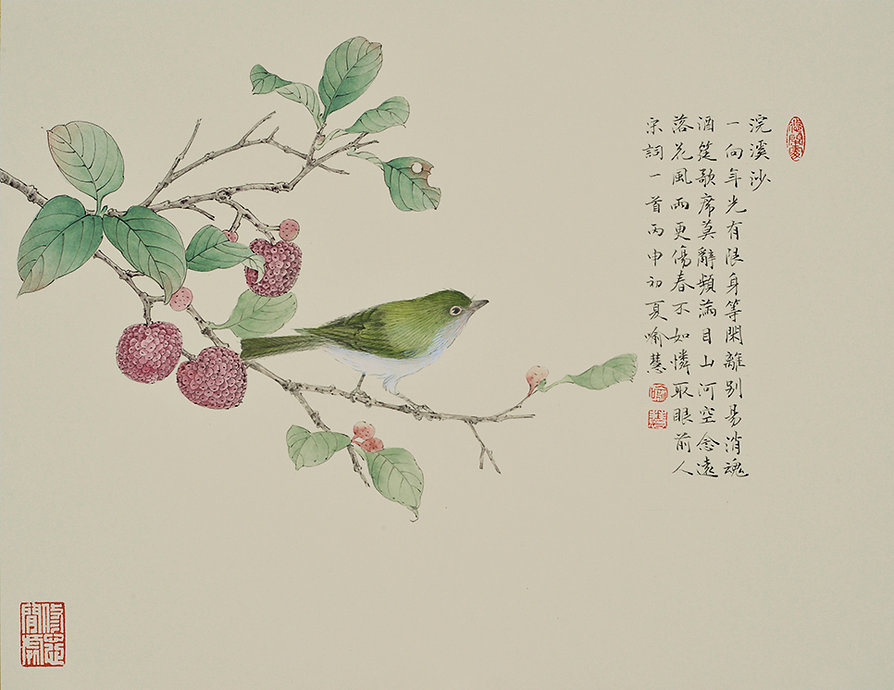 浣溪沙
一向年光有限身等閑離別易消魂
酒筵歌席莫辭頻滿目山河空念遠
落花風雨更傷春不如憐取眼前人
宋詞一首丙申初夏喻慧